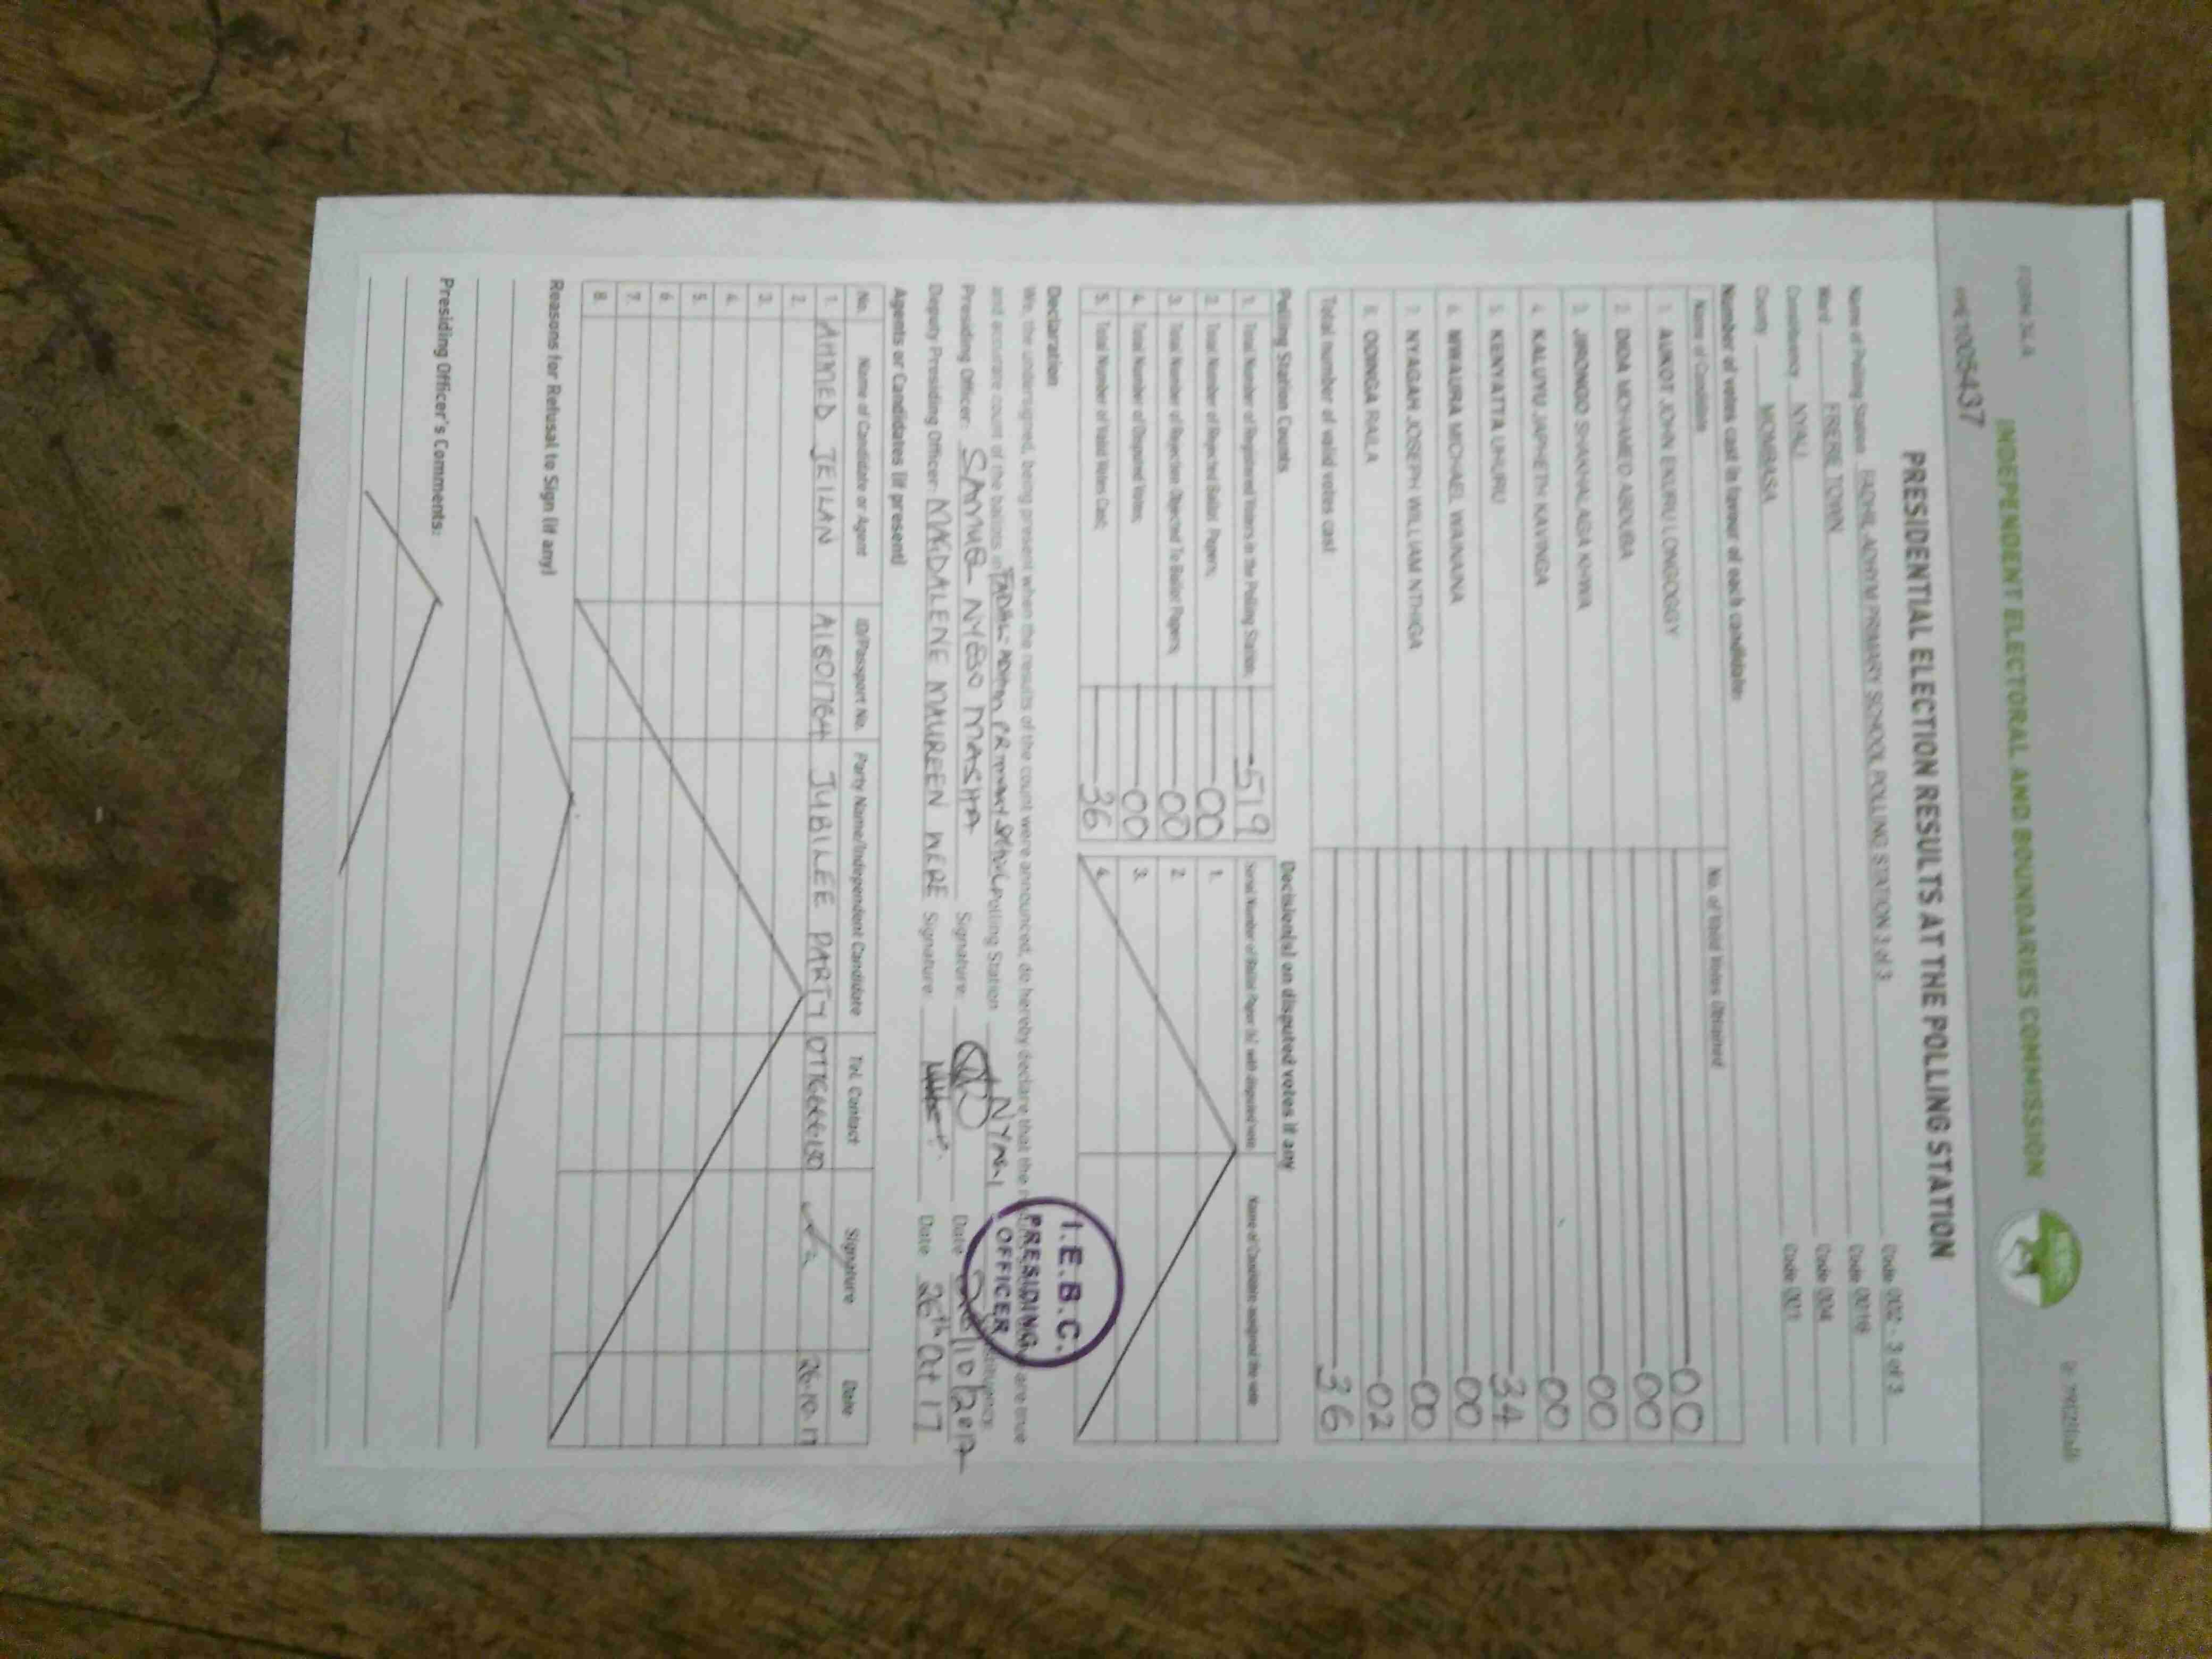 FORM 34 A
INDEPENDENT ELECTORAL AND BOUNDARIES COMMISSION
1005437
PRESIDENTIAL ELECTION RESULTS AT THE POLLING STATION
Name of Polling Station FADHIL ADHYM PRIMARY SCHOOL POLLING STATION 3 of 3 Code 002 - 3 of 3
Ward FRERE TOWN Code 0016
Constituency NYALI Code 004
County MOMBASA Code 001
Number of votes cast in favour of each candidate:
Name of Candidate No. of Valid Votes Obtained
1. AUKOT JOHN EKURU LONGOGGY 00
2. DIDA MOHAMED ABDUBA 00
3. JIRONGO SHAKHALAGA KHWA 00
4. KALUYU JAPHETH KAVINGA 00
5. KENYATTA UHURU 34
6. MWAURA MICHAEL WAINAINA 00
7. NYAGAH JOSEPH WILLIAM NTHIGA 00
8. ODINGA RAILA 02
Total number of valid votes cast 36
Polling Station Counts
1. Total Number of Registered Voters in the Polling Station; 519
2. Total Number of Rejected Ballot Papers; 00
3. Total Number of Rejection Objected To Ballot Papers; 00
4. Total Number of Disputed Votes; 00
5. Total Number of Valid Votes Cast; 36
Decision(s) on disputed votes if any
Serial Number of Ballot Paper (s) with disputed vote Name of Candidate assigned the vote
1.
2.
3.
4.
Declaration
We, the undersigned, being present when the results of the count were announced, do hereby declare that the are true
and accurate count of the ballots in Polling Station NYALI
Presiding Officer: NYEBO MASHA Signature: Date /10/2017
Deputy Presiding Officer: MAGDALENE MAUREEN WERE Signature: Date 26th Oct 17
I.E.B.C.
PRESIDING
OFFICER
Agents or Candidates (if present)
No. Name of Candidate or Agent ID/Passport No. Party Name/Independent Candidate Tel. Contact Signature Date
1. AHMED JEILAN JUBILEE PARTY 26.10.17
2.
3.
4.
5.
6.
7.
8.
Reasons for Refusal to Sign (if any)
Presiding Officer's Comments: